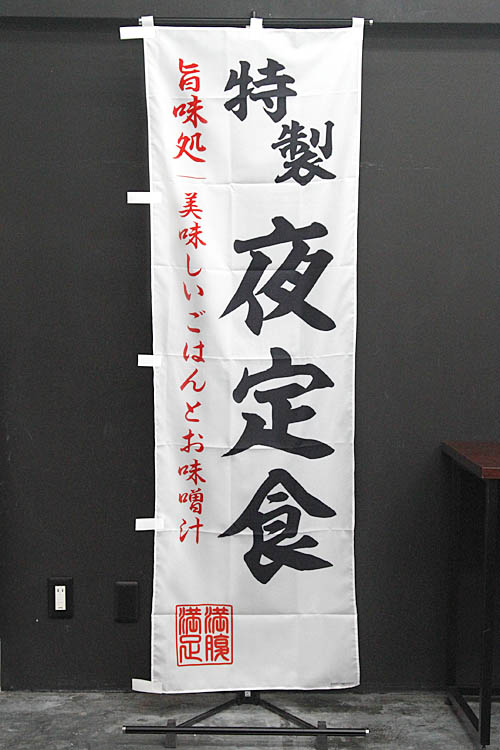 特製
夜定食
旨味処｜美味しいごはんとお味噌汁
満腹
満足